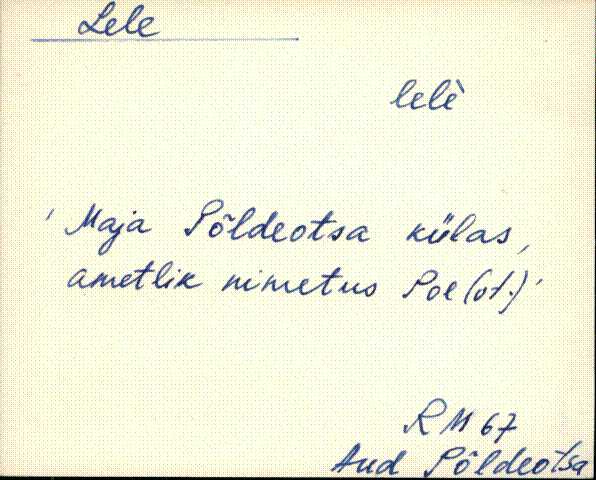 Lele
lelè
'Maja Põldeotsa külas,
ametlik nimetus Poe(ot.)'
RM 67
Aud Põldeotsa